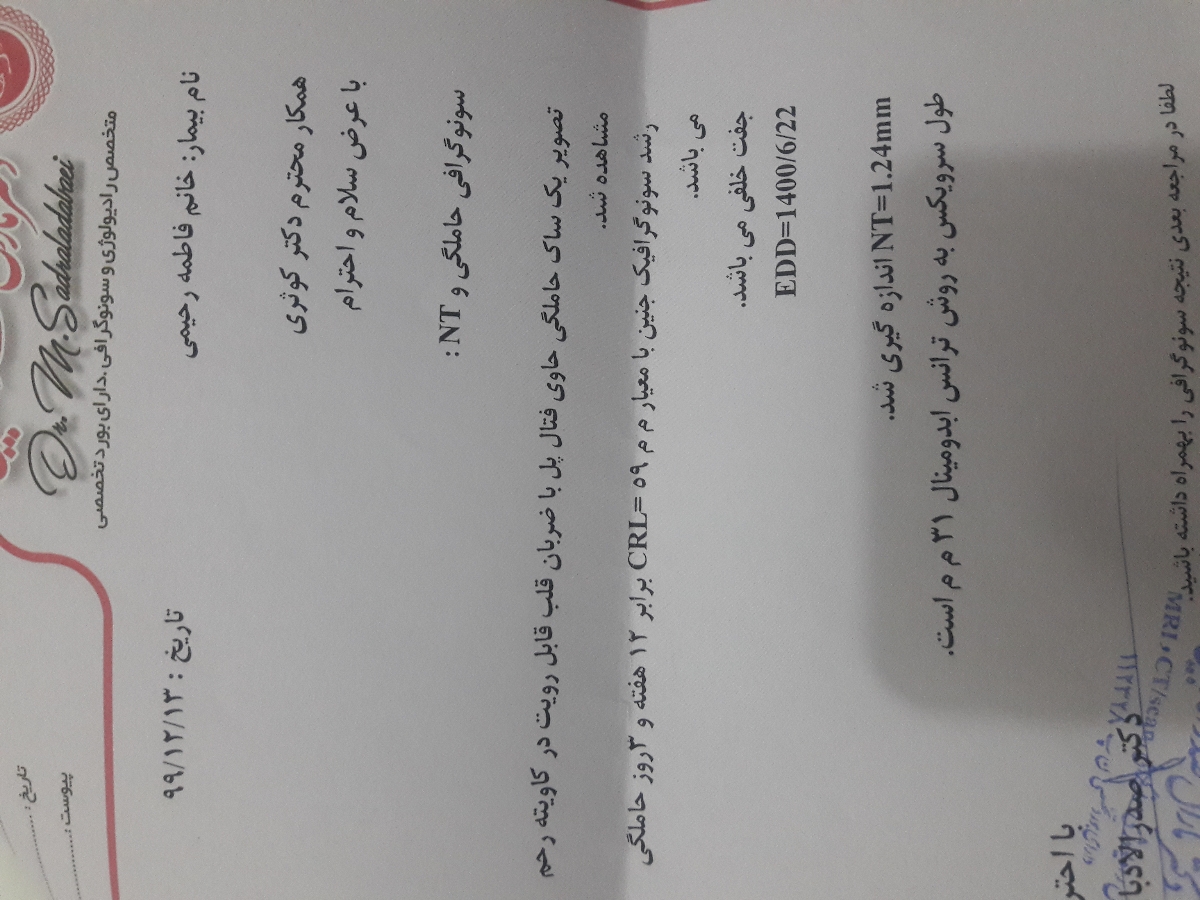 Dr. M. Sadraladabaei
متخصص رادیولوژی و سونوگرافی .دارای بورد تخصصی
تاریخ :
پیوست :
نام بیمار: خانم فاطمه رحیمی
تاریخ : ۹۹/۱۲/۱۳
همکار محترم دکتر کوثری
با عرض سلام و احترام
سونوگرافی حاملگی و NT :
تصویر یک ساک حاملگی حاوی فتال پل با ضربان قلب قابل رویت در کاویته رحم
مشاهده شد.
رشد سونوگرافیک جنین با معیار م م ۵۹ =CRL برابر ۱۲ هفته و ۳روز حاملگی
می باشد.
جفت خلفی می باشد.
EDD=1400/6/22
NT=1.24mm اندازه گیری شد.
طول سرویکس به روش ترانس ابدومینال ۳۱ م م است.
با احتر
دکتر صدرالادبا
MRI, CT/scan
لطفا در مراجعه بعدی نتیجه سونوگرافی را بهمراه داشته باشید.